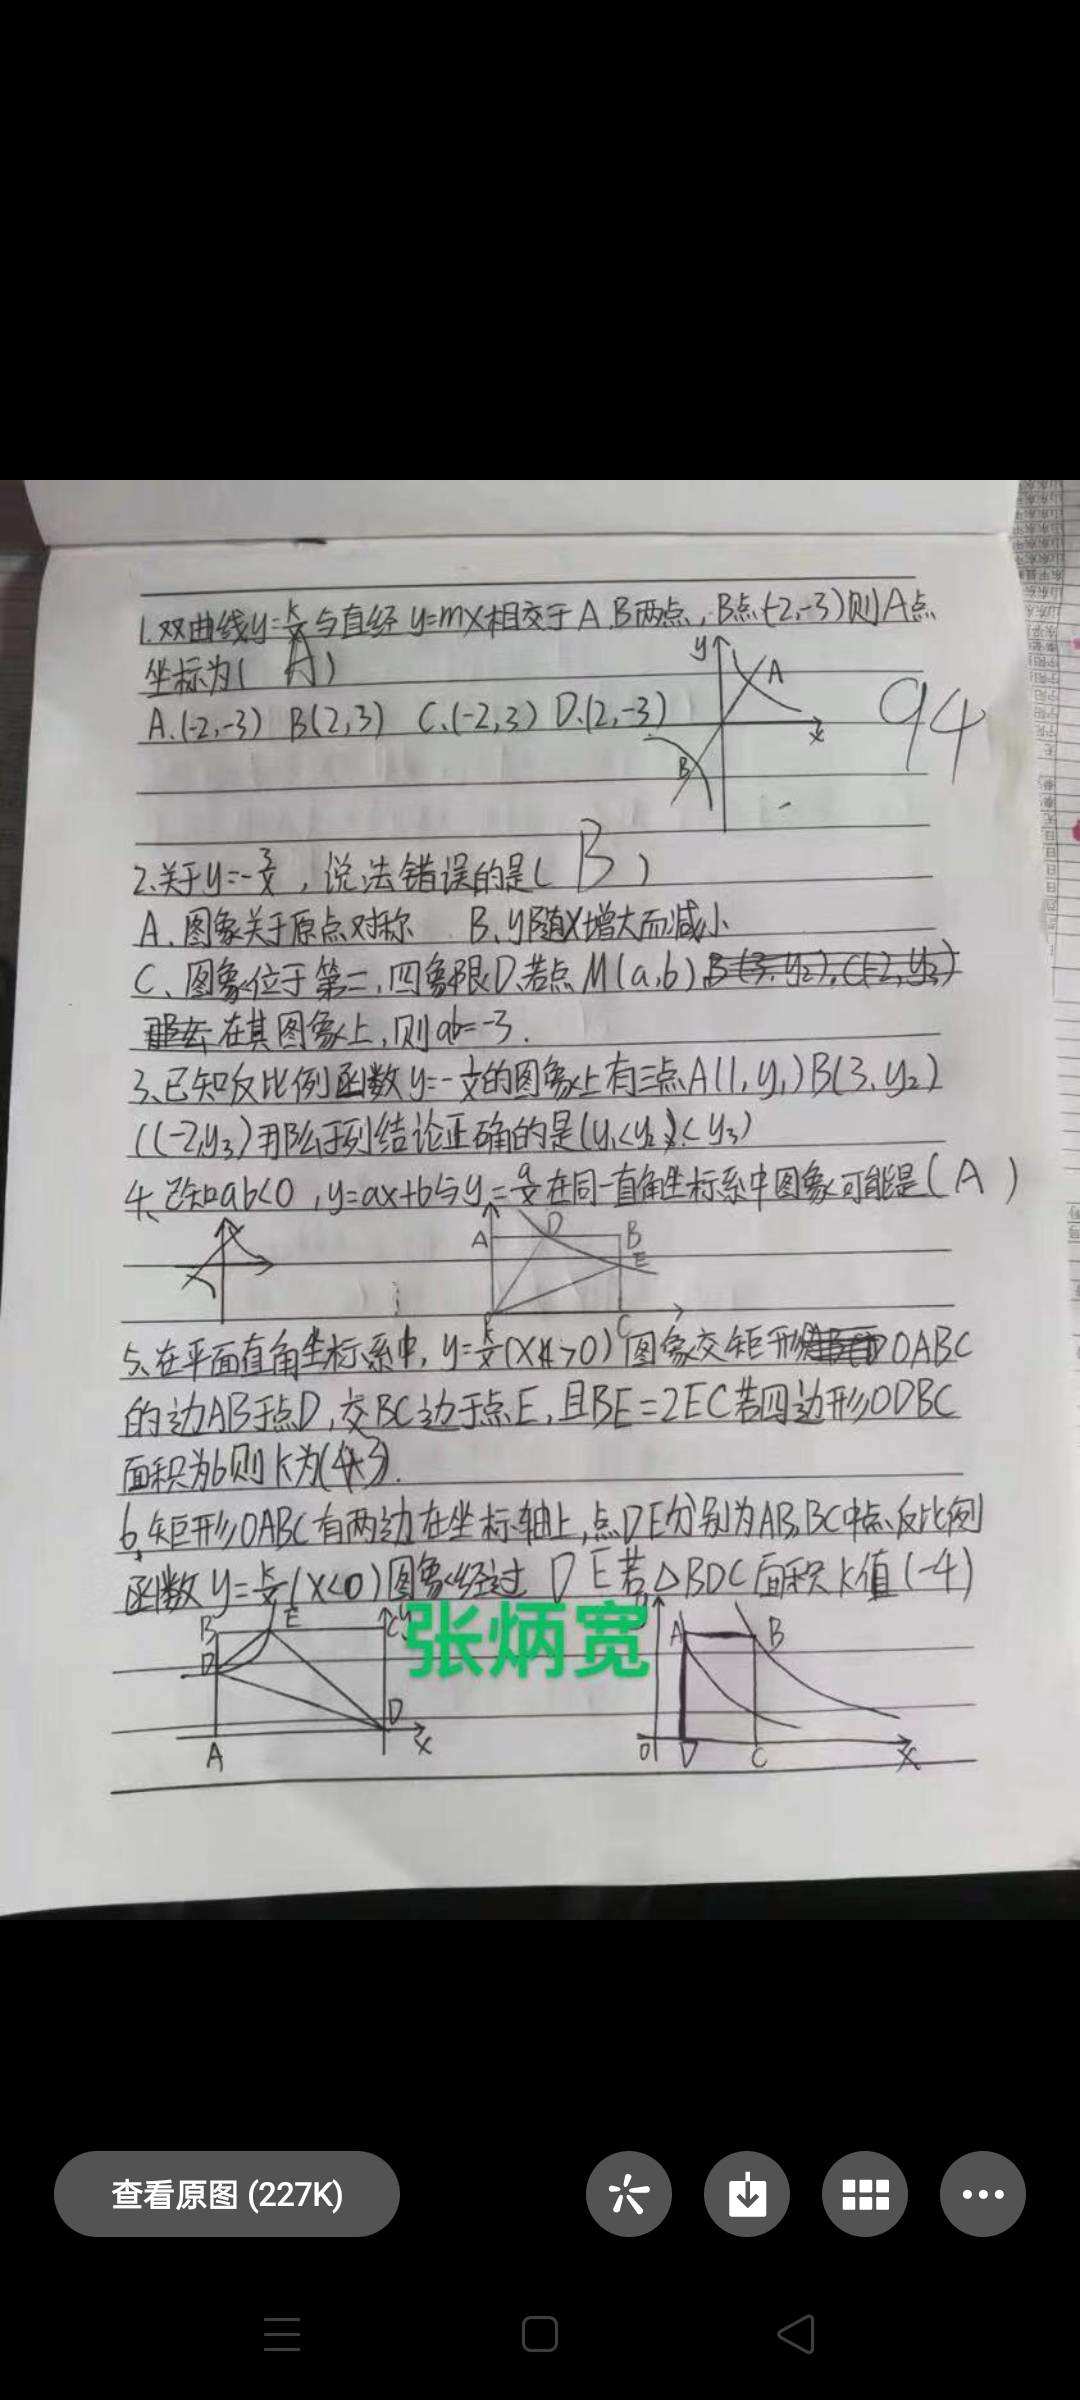 1.双曲线y=k/x与直经 y=mx相交于A.B两点,B点(-2,-3)则A点
坐标为( A )
A.(-2,-3) B(2,3) C.(-2,3) D.(2,-3)
y
A
x
B
94
2.关于y=-3/x,说法错误的是( B )
A、图象关于原点对称 B、y随x增大而减小
C、图象位于第二,四象限D、若点M(a,b)
在其图象上,则ab=-3.
3、已知反比例函数y=-1/x的图象上有三点A(1,y₁)B(3,y₂)
C(-2,y₃)那么下列结论正确的是(y₁<y₂<y₃)
4、已知ab<0,y=ax+b与y=a/x在同一直角坐标系中图象可能是(A)
A D B
E
C
5、在平面直角坐标系中,y=k/x(x>0)图象交矩形OABC
的边AB于点D,交BC边于点E,且BE=2EC若四边形ODBC
面积为6则k为
6、矩形OABC有两边在坐标轴上,点DE分别为AB,BC中点反比例
函数y=k/x(x<0)图象经过 D E若△BDC面积k值(-4)
张炳宽
B E C y
D
D
A x
A B
O D C x
查看原图 (227K)